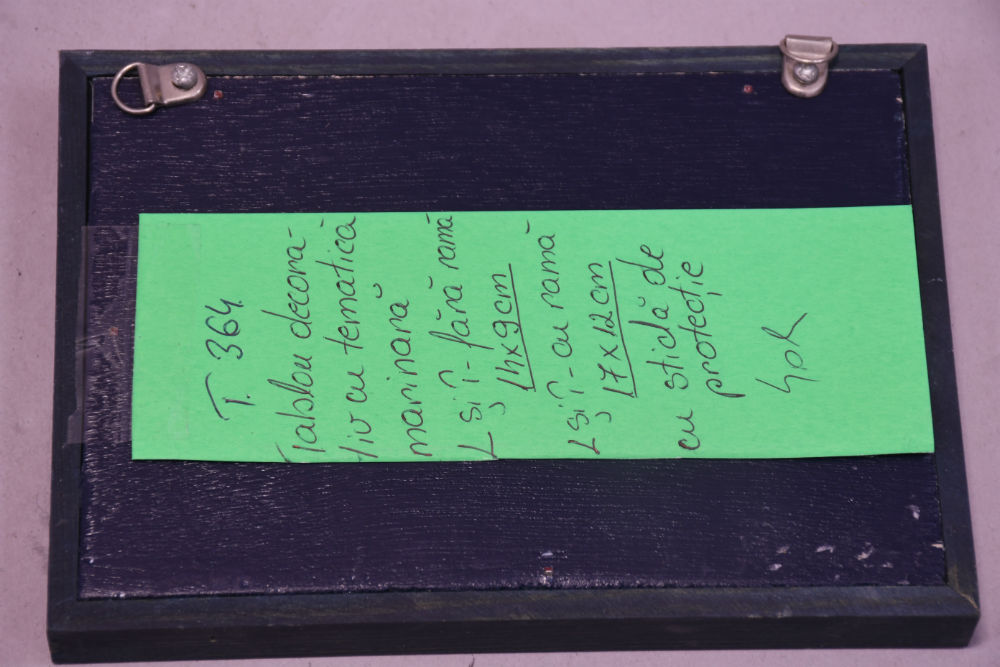 T. 364.
Tablou decora-
tiv cu tematică
marinară
L și î - fără ramă
14x9cm
L și î - cu ramă
17x12cm
cu sticlă de
protecție